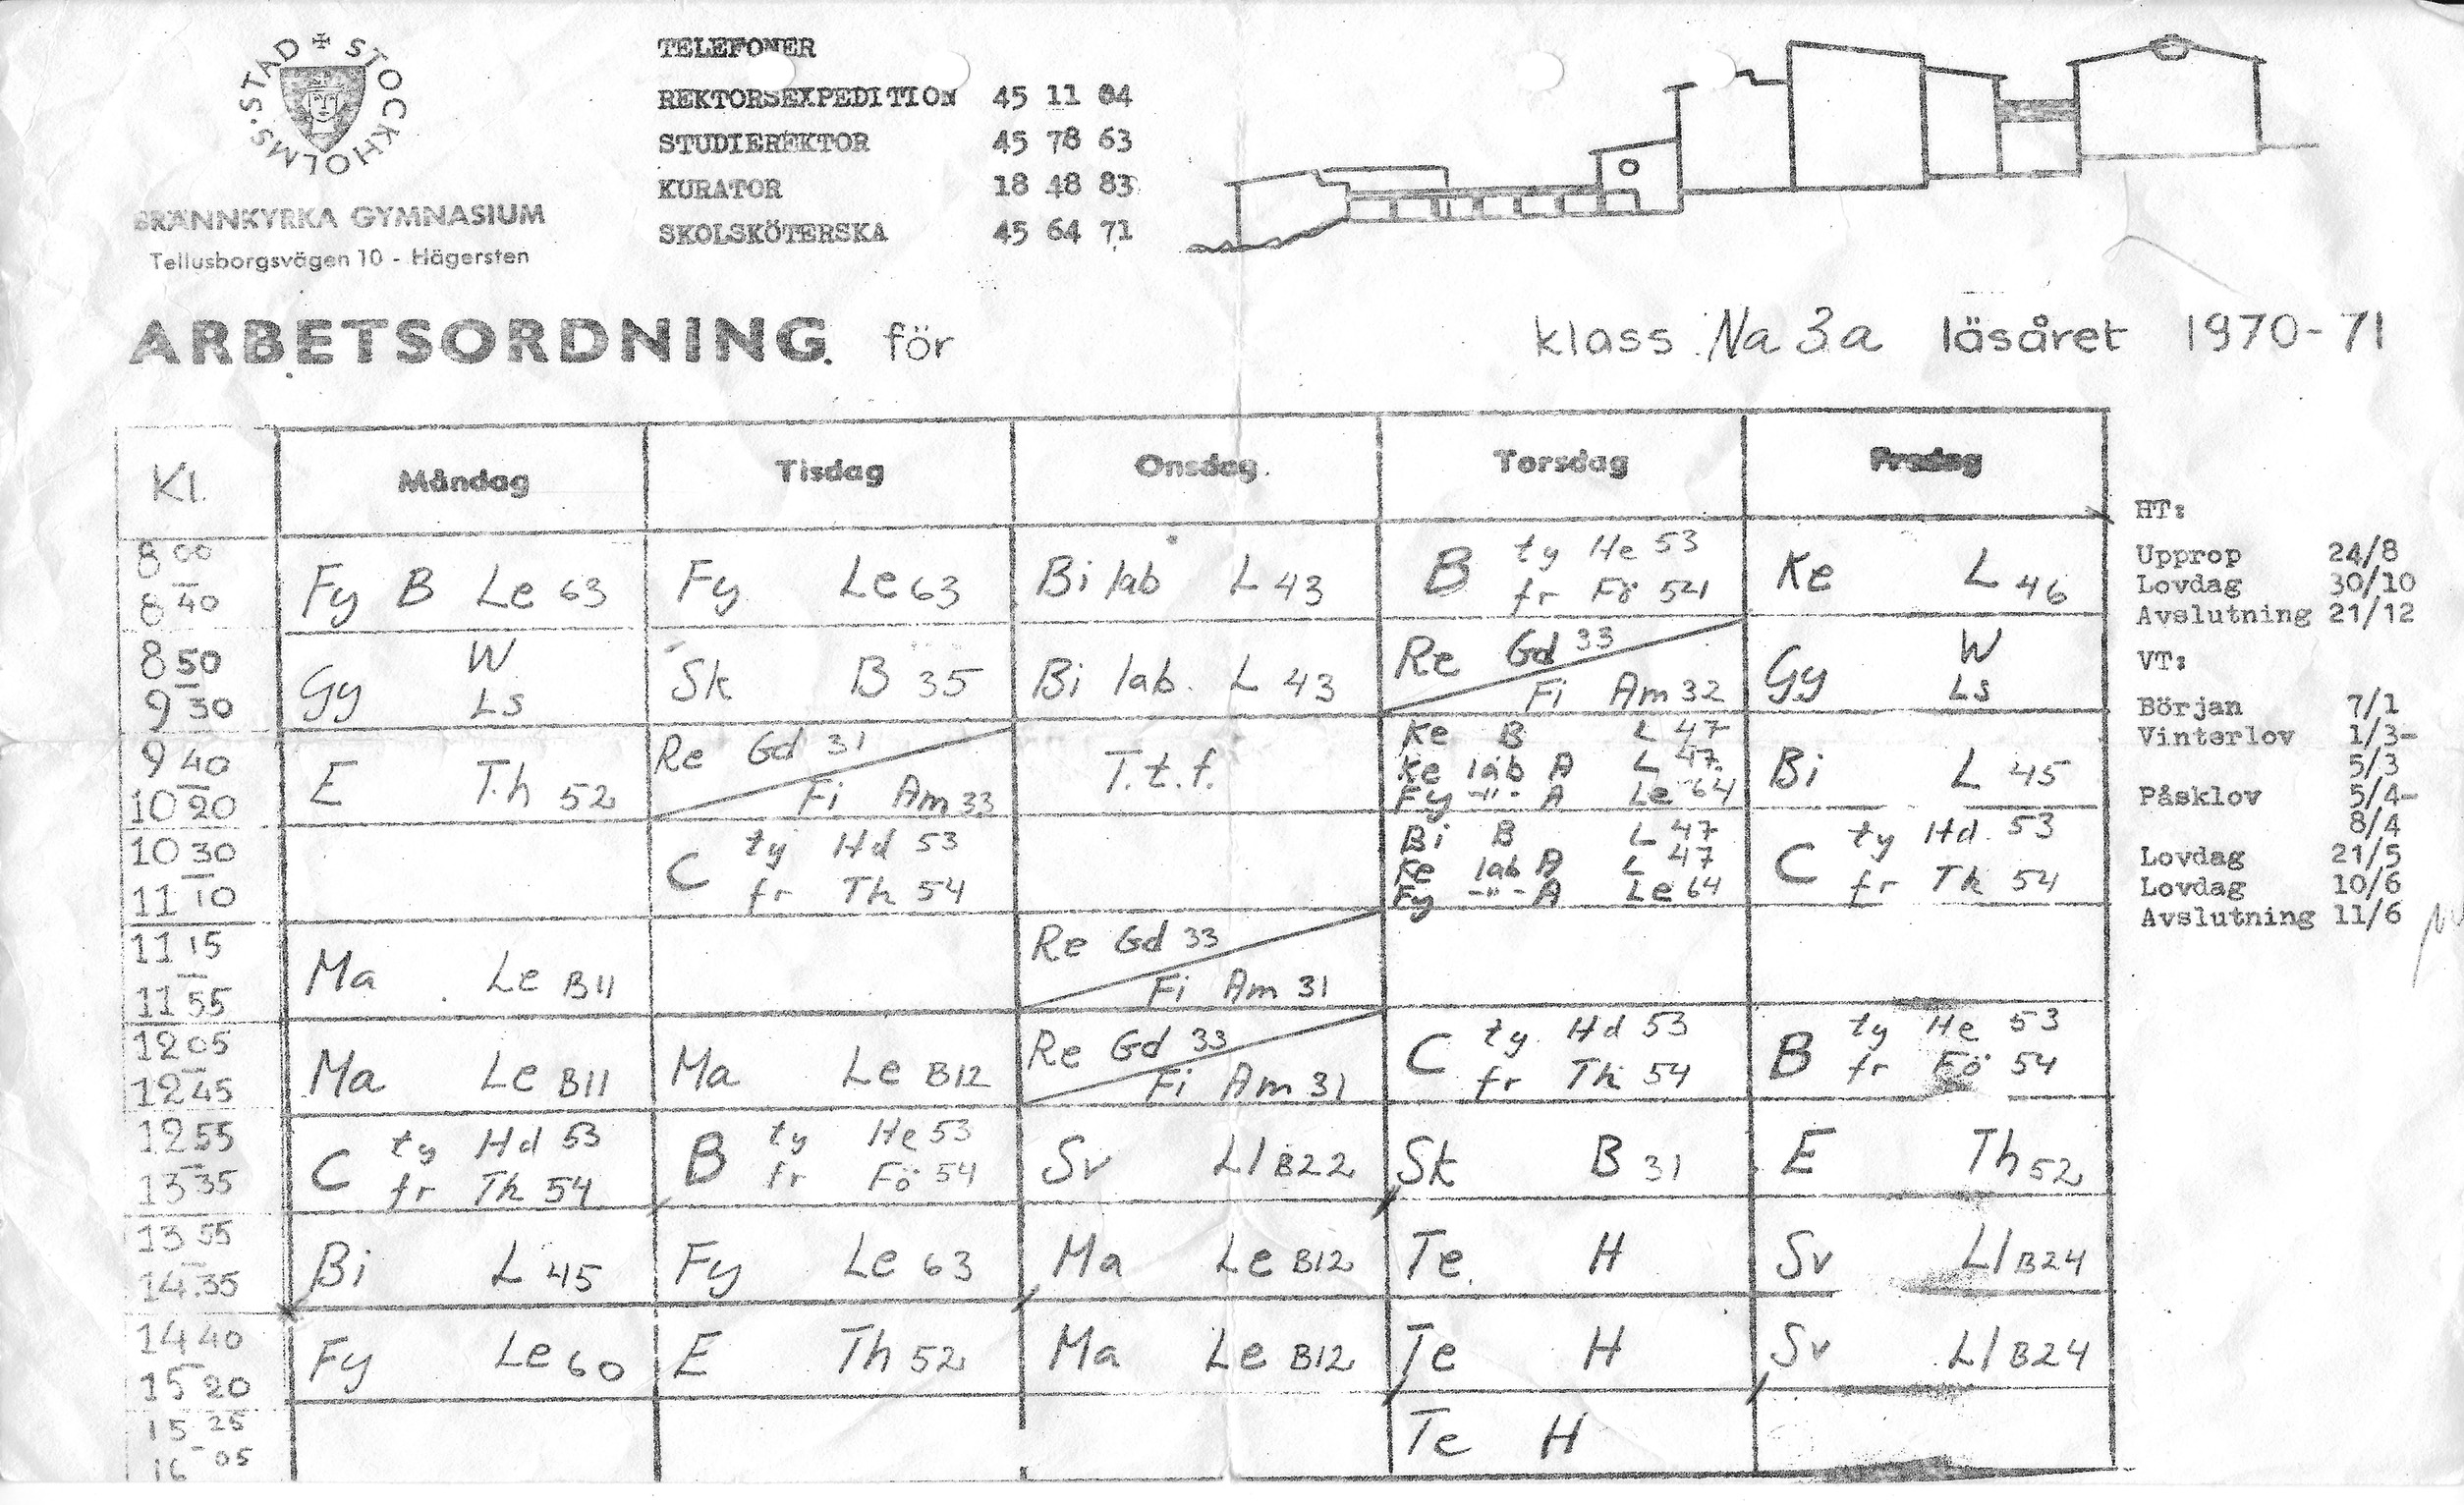 STOCKHOLMS · STAD
BRÄNNKYRKA GYMNASIUM
Tellusborgsvägen 10 - Hägersten
TELEFONER
REKTORSEXPEDITION 45 11 84
STUDIEREKTOR 45 78 63
KURATOR 18 48 83
SKOLSKÖTERSKA 45 64 71
ARBETSORDNING för klass Na 3a läsåret 1970-71
Kl. Måndag Tisdag Onsdag Torsdag Fredag
8 00 – 8 40
Fy B Le 63
Fy Le 63
Bi lab L 43
B ty He 53
fr Fö 54
Ke L 46
8 50 – 9 30
Gy W
LS
Sk B 35
Bi lab. L 43
Re Gd 33
Fi Am 32
Gy W
LS
9 40 – 10 20
E Th 52
Re Gd 31
Fi Am 33
T.t.f.
Ke B L 47
Ke lab A L 47
Fy -"- A Le 64
Bi L 45
10 30 – 11 10
C ty Hd 53
fr Th 54
Bi B L 47
Ke lab A L 47
Fy -"- A Le 64
C ty Hd 53
fr Th 54
11 15 – 11 55
Ma Le B11
Re Gd 33
Fi Am 31
12 05 – 12 45
Ma Le B11
Ma Le B12
Re Gd 33
Fi Am 31
C ty Hd 53
fr Th 54
B ty He 53
fr Fö 54
12 55 – 13 35
C ty Hd 53
fr Th 54
B ty He 53
fr Fö 54
Sv Ll B22
Sk B 31
E Th 52
13 55 – 14.35
Bi L 45
Fy Le 63
Ma Le B12
Te H
Sv Ll B24
14 40 – 15 20
Fy Le 60
E Th 52
Ma Le B12
Te H
Sv Ll B24
15 25 - 16 05
Te H
HT:
Upprop 24/8
Lovdag 30/10
Avslutning 21/12
VT:
Början 7/1
Vinterlov 1/3-
5/3
Påsklov 5/4-
8/4
Lovdag 21/5
Lovdag 10/6
Avslutning 11/6